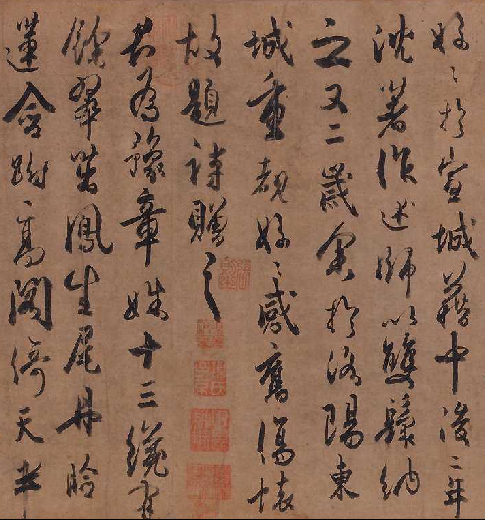 好〻於宣城藉中後二年
沈著作述師以雙鬟納
之又二歲余於洛陽東
城重覩好〻感舊傷懷
故題詩贈之
君為豫章姝十三纔有
餘翠茁鳳生尾丹臉
蓮含跗高閣倚天半